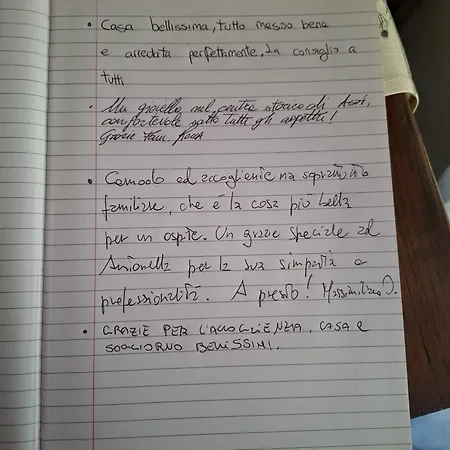 • Casa bellissima, tutto messo bene
e arredata perfettamente. La consiglio a
tutti
• Un gioiello nel centro storico di Asti,
confortevole sotto tutti gli aspetti!
Grazie Fam. Rocca
• Comodo ed accogliente ma soprattutto
familiare, che è la cosa più bella
per un ospite. Un grazie speciale ad
Antonella per la sua simpatia e
professionalità. A presto! Massimiliano D.
• GRAZIE PER L'ACCOGLIENZA, CASA E
SOGGIORNO BELLISSIMI.